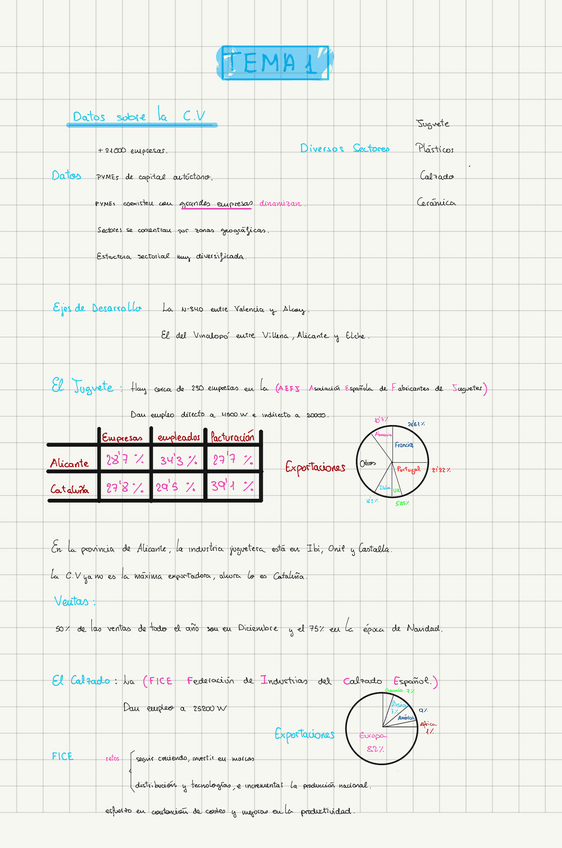 TEMA 1
Datos sobre la C.V
+ 21000 empresas.
Diversos Sectores
Juguete
Plásticos
Calzado
Cerámica
Datos
PYMEs de capital autóctono.
PYMEs coexisten con grandes empresas dinamizan
Sectores se concentran por zonas geográficas.
Estructura sectorial muy diversificada
Ejes de Desarrollo
La N-340 entre Valencia y Alcoy.
El del Vinalopó entre Villena, Alicante y Elche.
El Juguete: Hay cerca de 230 empresas en la (AEFJ Asociación Española de Fabricantes de Juguetes)
Dan empleo directo a 4900 W e indirecto a 20000.
Empresas empleados facturación
Alicante 28'7 % 34'3 % 27'7 %
Cataluña 27'8 % 29'5 % 39'1 %
Exportaciones
Francia
Portugal
Italia
Otros
En la provincia de Alicante, la industria juguetera está en Ibi, Onil y Castalla.
La C.V ya no es la máxima exportadora, ahora lo es Cataluña
Ventas:
50% de las ventas de todo el año son en Diciembre y el 75% en la época de Navidad.
El Calzado: La (FICE Federación de Industrias del Calzado Español.)
Dan empleo a 25200 W
Exportaciones
Europa
82%
América
9%
África
1%
FICE
retos
seguir creciendo, invertir en marcas
distribución y tecnologías, e incrementar la producción nacional.
esfuerzo en contención de costes y mejoras en la productividad.